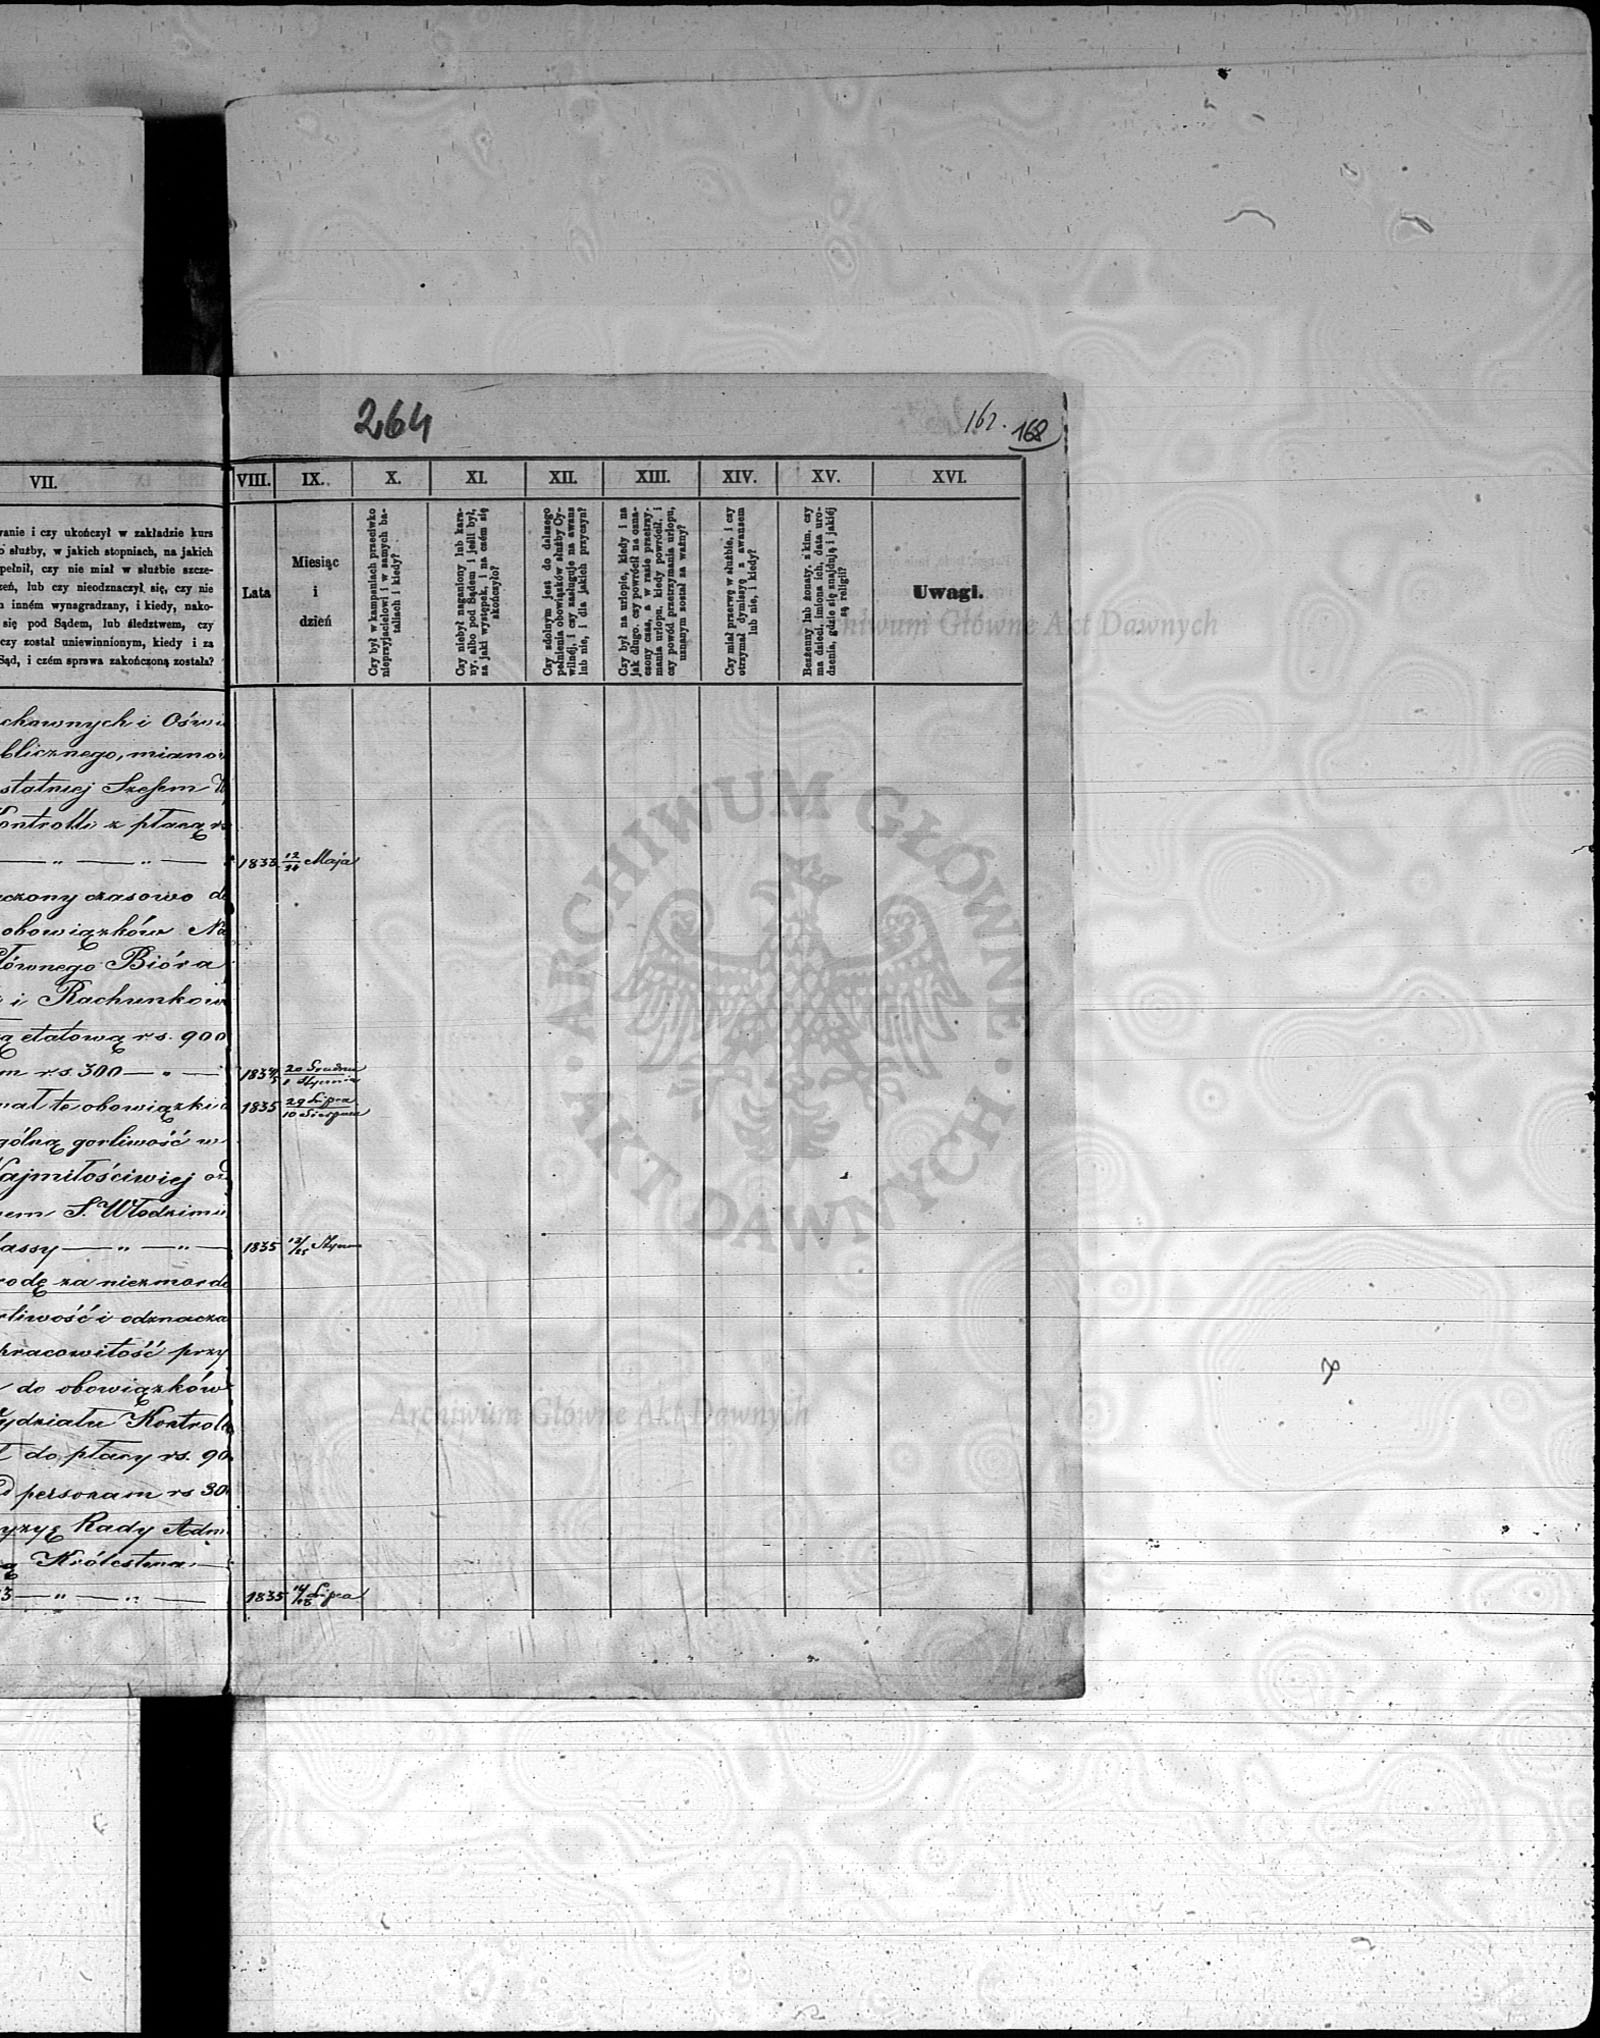 264
162.
168
VII.
VIII.
IX.
X.
XI.
XII.
XIII.
XIV.
XV.
XVI.
wanie i czy ukończył w zakładzie kurs
o służby, w jakich stopniach, na jakich
pełnił, czy nie miał w służbie szcze-
zeń, lub czy nieodznaczył się, czy nie
n inném wynagradzany, i kiedy, nako-
się pod Sądem, lub śledztwem, czy
czy został uniewinnionym, kiedy i za
Sąd, i czém sprawa zakończoną została?
Lata
Miesiąc
i
dzień
Czy był w kampaniach przeciwko
nieprzyjacielowi i w samych ba-
taliach i kiedy?
Czy niebył naganiony lub kara-
ny, albo pod Sądem i jeśli był,
za jaki występek, i na czém się
skończyło?
Czy zdolnym jest do dalszego
pełnienia obowiązków służby Cy-
wilnéj, i czy zasługuje na awans
lub nie, i dla jakich przyczyn?
Czy był na urlopie, kiedy i na
jak długo, czy powrócił na ozna-
czony czas, a w razie przetrzy-
mania urlopu, kiedy powrócił, i
czy powód przetrzymania urlopu,
uznanym został za ważny?
Czy miał przerwę w służbie, i czy
otrzymał dymissyę z awansem
lub nie, i kiedy?
Bezżenny lub żonaty, z kim, czy
ma dzieci, imiona ich, data uro-
dzenia, gdzie się znajdują i jakiéj
są religii?
Uwagi.
chownych i Oświ
blicznego, miano
statniej Szefem
Kontrolli z płacą rs
1833 12/24 Maja
czony czasowo do
obowiązków Na
łównego Bióra
i Rachunków
ą etatową rs. 900
m rs 300
1834/5 20 Grudnia / 1 Stycznia
nał te obowiązki
1835 29 Lipca / 10 Sierpnia
gólną gorliwość w
Najmiłościwiej
em S. Włodzimi
lassy
1835 13/25 Stycz
rodę za niezmordo
rliwość i odznacza
pracowitość przy
do obowiązków
ydziału Kontroli
do płacy rs. 90
personam rs 30
yzyę Rady Adm
ą Królestwa
3
1835 Lipca
Archiwum Główne Akt Dawnych
ARCHIWUM GŁÓWNE · AKT DAWNYCH ·
Archiwum Główne Akt Dawnych